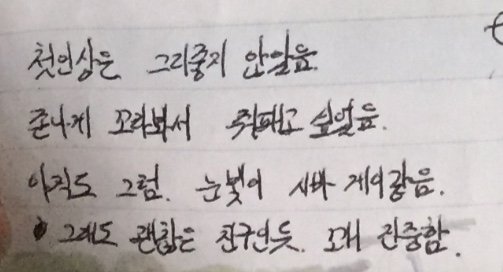 첫인상은 그리좋지 안았음.
존나게 꼬라봐서 쥐패고 싶었음.
아직도 그럼. 눈빛이 시바 게이같음.
그래도 괜찮은 친구인듯. 꼬개 진중함.